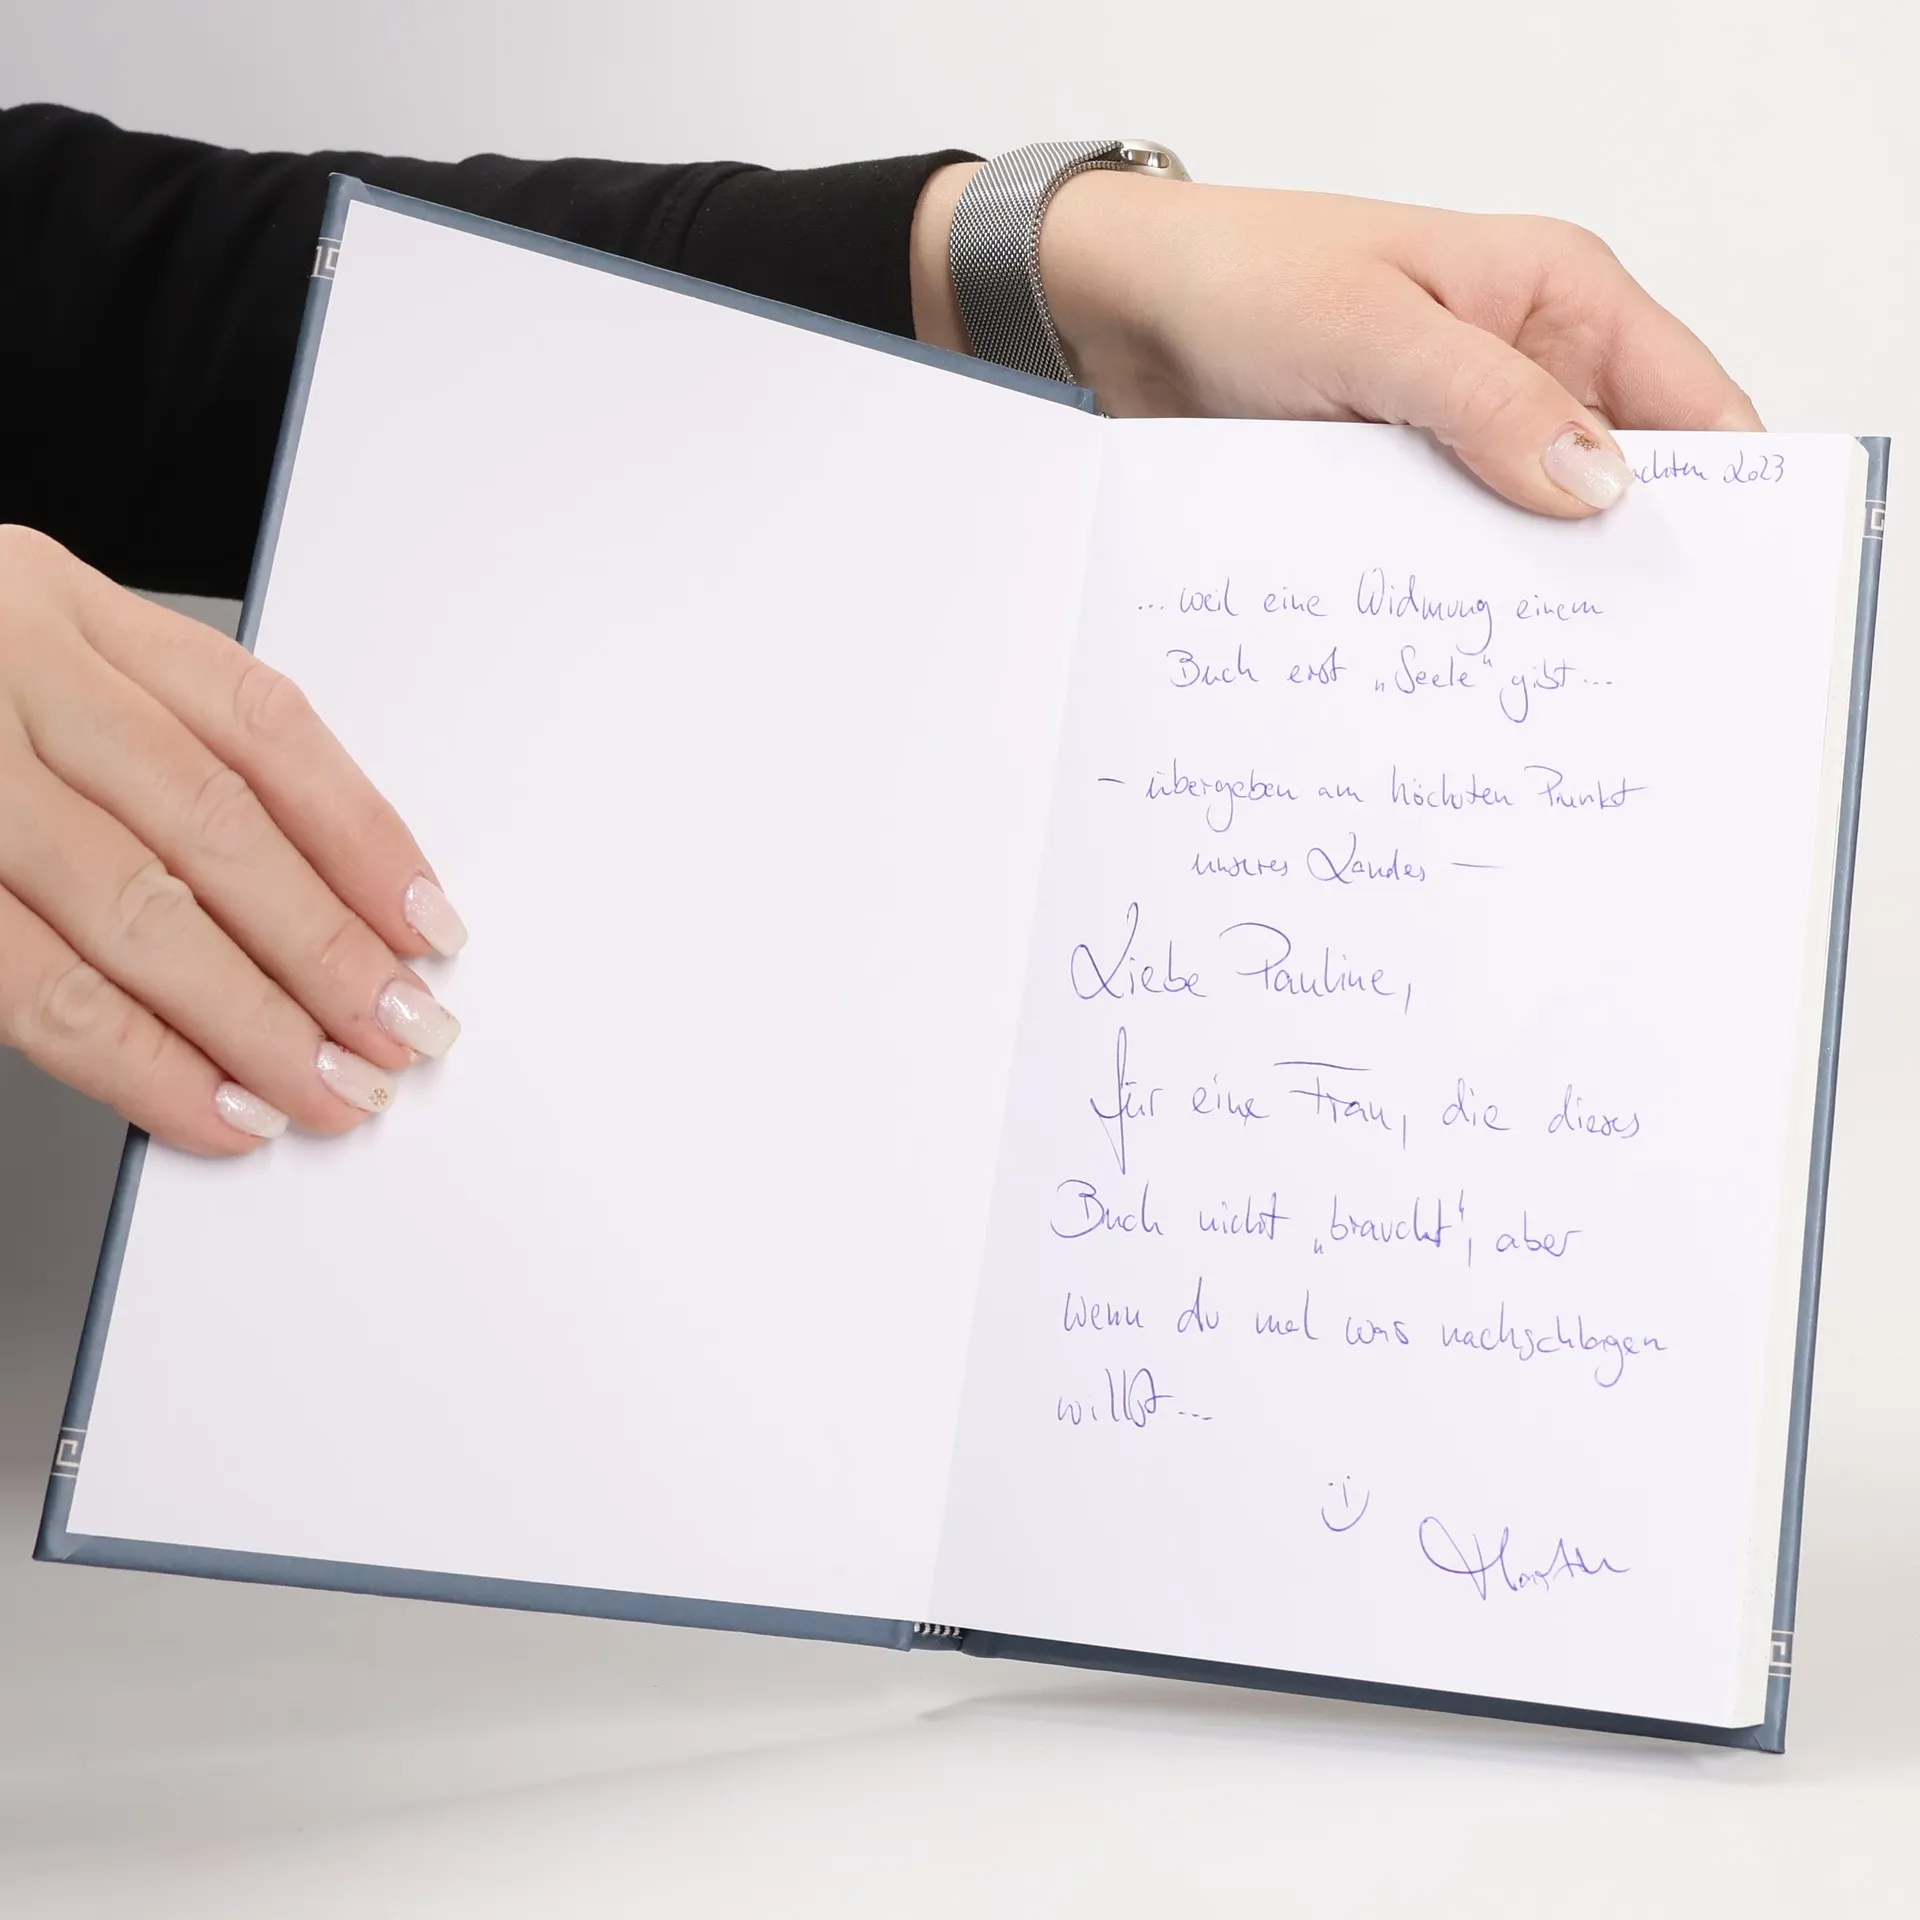 achten 2023
... weil eine Widmung einem
Buch erst „Seele“ gibt...
– übergeben am höchsten Punkt
unseres Landes –
Liebe Pauline,
für eine Frau, die dieses
Buch nicht „braucht“, aber
wenn du mal was nachschlagen
willst...